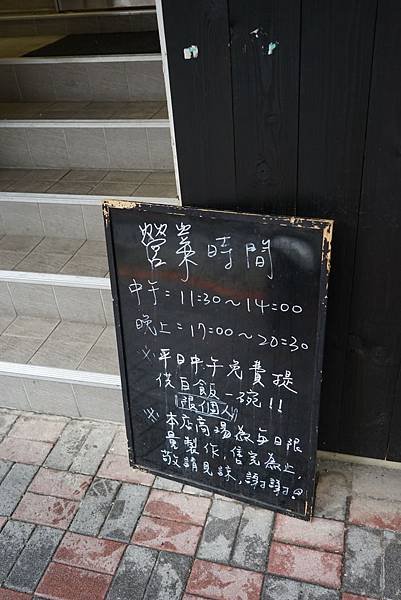 營業時間
中午：11:30～14:00
晚上：17:00～20:30
※平日中午免費提
供白飯一碗!!
(限個人)
※本店商湯為每日限
量製作,售完為止,
敬請見諒,謝謝?